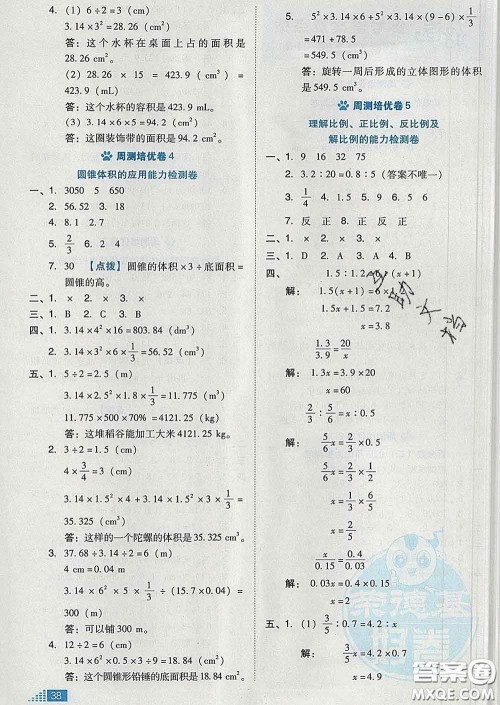 4. (1) 6÷2=3 (cm)
3.14×3²=28.26 (cm²)
答：这个水杯在桌面上占的面积是
28.26 cm²。
(2) 28.26 × 15 = 423.9 (cm³)
423.9 cm³=423.9 mL
答：这个水杯的容积是 423.9 mL。
(3) 3.14×6×5=94.2 (cm²)
答：这圈装饰带的面积是 94.2 cm²。
周测培优卷 4
圆锥体积的应用能力检测卷
一、1. 3050 5 650
2. 56.52 3.14 18
4. 8.1 2.7
5. 2/3 6. 2 4
7. 30 【点拨】圆锥的体积×3÷底面积=
圆锥的高。
二、1. × 2. × 3. ×
三、1. B 2. C 3. B
四、1. 3.14×4²×16=803.84 (dm³)
2. 3.14×3²×6×1/3=56.52 (cm³)
五、1. 5÷2=2.5 (m)
3.14×2.5²×1.8×1/3=11.775 (m³)
11.775×500×70%=4121.25 (kg)
答：这堆稻谷能加工大米4121.25 kg。
2. 3÷2=1.5 (cm)
4×3/4=3 (cm)
3.14×1.5²×4+3.14×1.5²×3×1/3=
35.325 (cm³)
答：这样的一个陀螺的体积是 35.325 cm³。
3. 37.68÷3.14÷2=6 (m)
4 cm=0.04 m
3.14×6²×5×1/3÷(3.14×2×0.04)=
答：可以铺 300 m。
4. 12÷2=6 (cm)
3.14×6²×0.5×3÷9=18.84 (cm²)
答：这个圆锥形铅锤的底面积是 18.84 cm²。
38
5. 5²×3.14×6+5²×3.14×(9-6)×1/3
=471+78.5
=549.5 (cm³)
答：旋转一周后形成的立体图形的体积是
549.5 cm³。
周测培优卷 5
理解比例、正比例、反比例及
解比例的能力检测卷
一、1. 9 16 32 75
2. 3.2：20=0.8：5 (答案不唯一)
7. 反 正 8. 反 正 正
二、1. × 2. × 3. × 4. ×
三、1. D 2. C 3. A 4. B
四、
解：
x=3.8
1.3/3.9=20/x
解： 1.3x=3.9×20
x=60
2/3：5/6=x：0.5
解： 5/6x=2/3×0.5
x=1/3×6/5
x=2/5
解： 0.03x=0.4×0.15
x=2
五、1. (1) 3/5：0.7=4.2：x
解： 3/5x=4.2×0.7
x=4.9
荣德基
好卷
答案圈
MXQE.COM